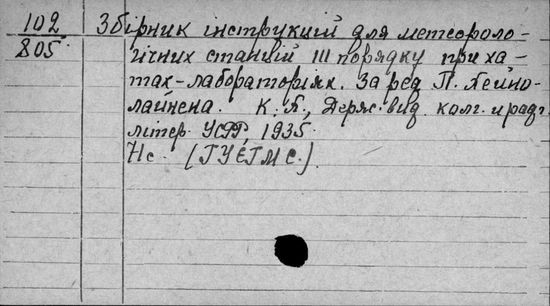 102 Збірник інструкций для метеороло-
805 гічних станцій III порядку при ха-
тах-лабораторіях. За ред. П. Лейно-
лайнена. К. Л., Держ. вид. колг. и рад.
літер. УСРР, 1935.
Нс. (ГУЄГМС.).